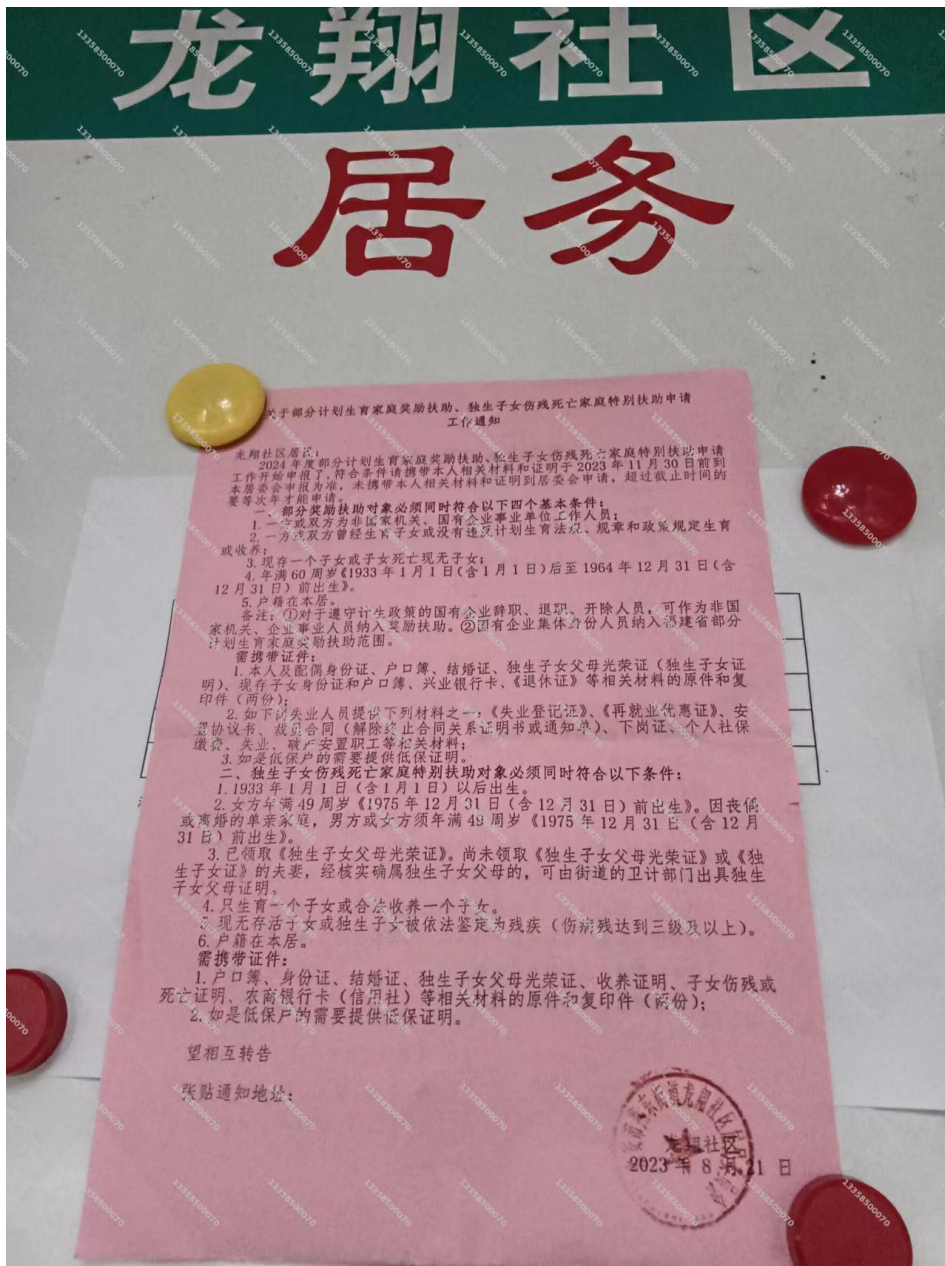 龙翔社区
居务
关于部分计划生育家庭奖励扶助、独生子女伤残死亡家庭特别扶助申请
工作通知
龙翔社区居民:
2024年度部分计划生育家庭奖励扶助、独生子女伤残死亡家庭特别扶助申请
工作开始申报了,符合条件请携带本人相关材料和证明于2023年11月30日前到
本居委会申报为准,未携带本人相关材料和证明到居委会申请,超过截止时间的
要等次年才能申请。
一、部分奖励扶助对象必须同时符合以下四个基本条件:
1.一方或双方为非国家机关、国有企业事业单位工作人员;
2.一方或双方曾经生育子女或没有违反计划生育法规、规章和政策规定生育
或收养;
3.现存一个子女或子女死亡现无子女;
4.年满60周岁《1933年1月1日(含1月1日)后至1964年12月31日(含
12月31日)前出生》。
5.户籍在本居。
备注:①对于遵守计生政策的国有企业辞职、退职、开除人员,可作为非国
家机关、企业事业人员纳入奖励扶助。②国有企业集体身份人员纳入福建省部分
计划生育家庭奖励扶助范围。
需携带证件:
1.本人及配偶身份证、户口簿、结婚证、独生子女父母光荣证(独生子女证
明)、现存子女身份证和户口簿、兴业银行卡、《退休证》等相关材料的原件和复
印件(两份);
2.如下岗失业人员提供下列材料之一:《失业登记证》、《再就业优惠证》、安
置协议书、裁员合同(解除终止合同关系证明书或通知单)、下岗证、个人社保
缴费、失业、破产安置职工等相关材料;
3.如是低保户的需要提供低保证明。
二、独生子女伤残死亡家庭特别扶助对象必须同时符合以下条件:
1.1933年1月1日(含1月1日)以后出生。
2.女方年满49周岁《1975年12月31日(含12月31日)前出生》。因丧偶
或离婚的单亲家庭,男方或女方须年满49周岁《1975年12月31日(含12月
31日)前出生》。
3.已领取《独生子女父母光荣证》。尚未领取《独生子女父母光荣证》或《独
生子女证》的夫妻,经核实确属独生子女父母的,可由街道的卫计部门出具独生
子女父母证明。
4.只生育一个子女或合法收养一个子女。
5.现无存活子女或独生子女被依法鉴定为残疾(伤病残达到三级及以上)。
6.户籍在本居。
需携带证件:
1.户口簿、身份证、结婚证、独生子女父母光荣证、收养证明、子女伤残或
死亡证明、农商银行卡(信用社)等相关材料的原件和复印件(两份);
2.如是低保户的需要提供低保证明。
望相互转告
张贴通知地址:
龙翔社区
2023年8月21日
13358500070